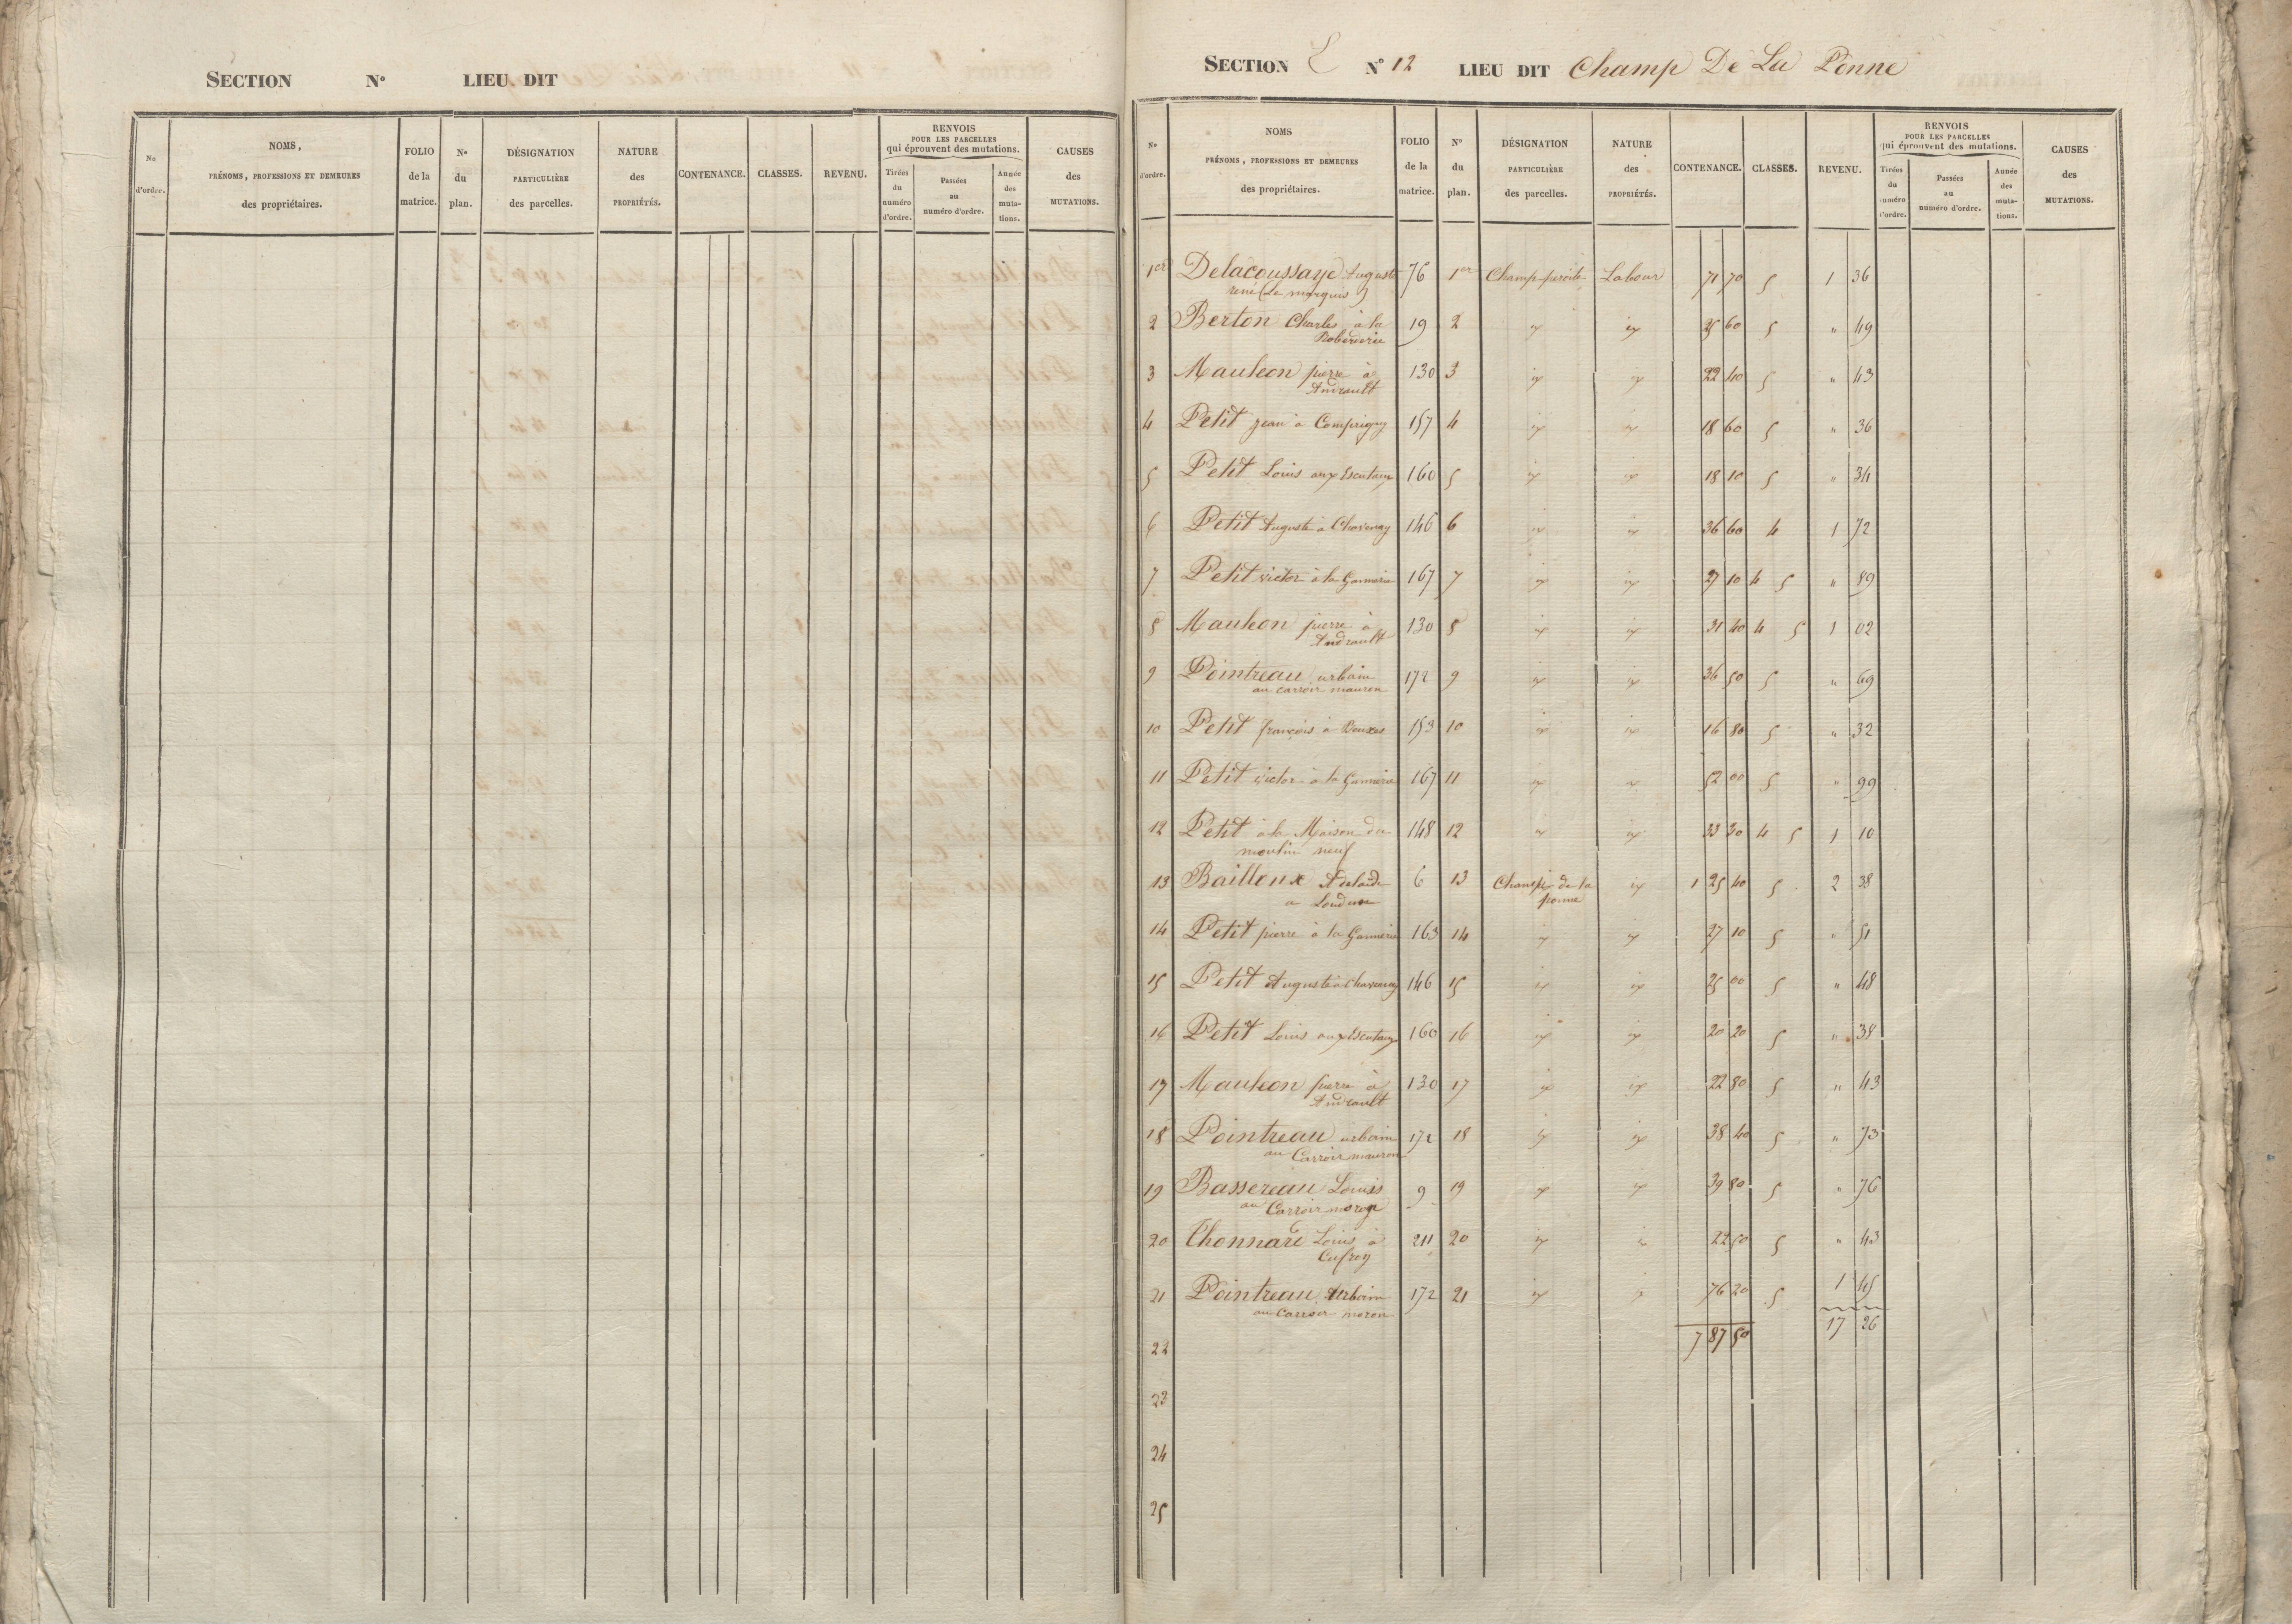 SECTION N° LIEU DIT
N° d'ordre. NOMS, PRÉNOMS, PROFESSIONS ET DEMEURES des propriétaires. FOLIO de la matrice. N° du plan. DÉSIGNATION PARTICULIÈRE des parcelles. NATURE des PROPRIÉTÉS. CONTENANCE. CLASSES. REVENU. RENVOIS POUR LES PARCELLES qui éprouvent des mutations. Tirées du numéro d'ordre. Passées au numéro d'ordre. Année des mutations. CAUSES des MUTATIONS.
SECTION E N° 12 LIEU DIT Champ De La Ponne
N° d'ordre. NOMS PRÉNOMS, PROFESSIONS ET DEMEURES des propriétaires. FOLIO de la matrice. N° du plan. DÉSIGNATION PARTICULIÈRE des parcelles. NATURE des PROPRIÉTÉS. CONTENANCE. CLASSES. REVENU. RENVOIS POUR LES PARCELLES qui éprouvent des mutations. Tirées du numéro d'ordre. Passées au numéro d'ordre. Année des mutations. CAUSES des MUTATIONS.
1er Delacoussaye Auguste 76 1er Champ Labour 71 70 5 1 36
rené (Le marquis)
2 Berton Charles à la 19 2 25 60 5 " 49
3 Mauleon pierre à 130 3 22 40 5 " 43
Andrault
4 Petit jean à Comprigny 157 4 18 60 5 " 36
5 Petit Louis aux Escutaux 160 5 18 10 5 " 34
6 Petit Auguste à Chavenay 146 6 36 60 4 1 72
7 Petit victor à la Gannerie 167 7 27 10 4 5 " 89
8 Mauleon pierre à 130 8 31 40 4 5 1 02
Andrault
9 Pointreau urbain 172 9 36 50 5 " 69
au carroir mauron
10 Petit françois à Beuxes 153 10 16 80 5 " 32
11 Petit victor à la Gannerie 167 11 52 00 5 " 99
12 Petit à la Maison du 148 12 33 30 4 5 1 10
moulin neuf
13 Bailloux Adelaide 6 13 Champ de la 1 25 40 5 2 38
a Loudun ponne
14 Petit pierre à la Gannerie 163 14 27 10 5 " 51
15 Petit Auguste à Chavenay 146 15 25 00 5 " 48
16 Petit Louis aux Escutaux 160 16 20 20 5 " 38
17 Mauleon pierre à 130 17 22 80 5 " 43
Andrault
18 Pointreau urbain 172 18 38 40 5 " 73
au Carroir mauron
19 Bassereau Louis 9 19 39 80 5 " 76
au Carroir moron
20 Chonnare Louis à 211 20 22 50 5 " 43
21 Pointreau Urbain 172 21 76 20 5 1 45
au carroir moron
22 7 87 50 17 26
23
24
25